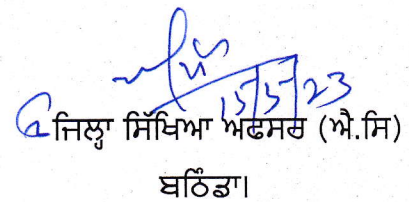 15/5/23
ਜਿਲ੍ਹਾ ਸਿੱਖਿਆ ਅਫਸਰ (ਐ.ਸਿ)
ਬਠਿੰਡਾ।